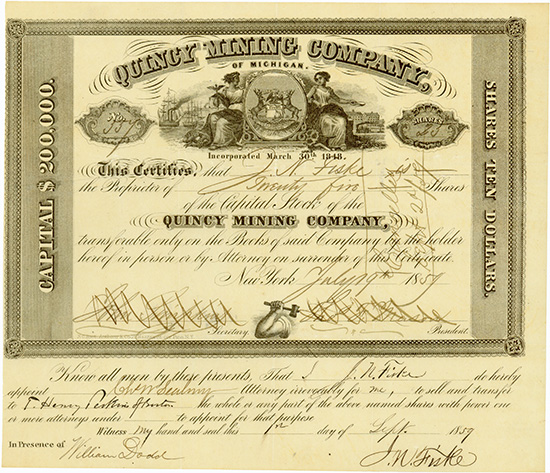 QUINCY MINING COMPANY,
OF MICHIGAN.
No.
SHARES
CAPITAL $ 200,000.
SHARES TEN DOLLARS.
Incorporated March 30th 1848.
This Certifies, that J. N. Fiske is
the Proprietor of Twenty five Shares
of the Capital Stock of the
QUINCY MINING COMPANY,
transferable only on the Books of said Company by the holder
hereof in person or by Attorney on surrender of this Certificate.
New York July 19th 1859
Secretary. President.
Know all men by these presents, That I J. N. Fiske do hereby
appoint Attorney irrevocably for me, to sell and transfer
to T. Henry Perkins of Boston the whole or any part of the above named shares with power one
or more attorneys under to appoint for that purpose
Witness my hand and seal this day of Sept. 1859
In Presence of
William Dodd
J. N. Fiske